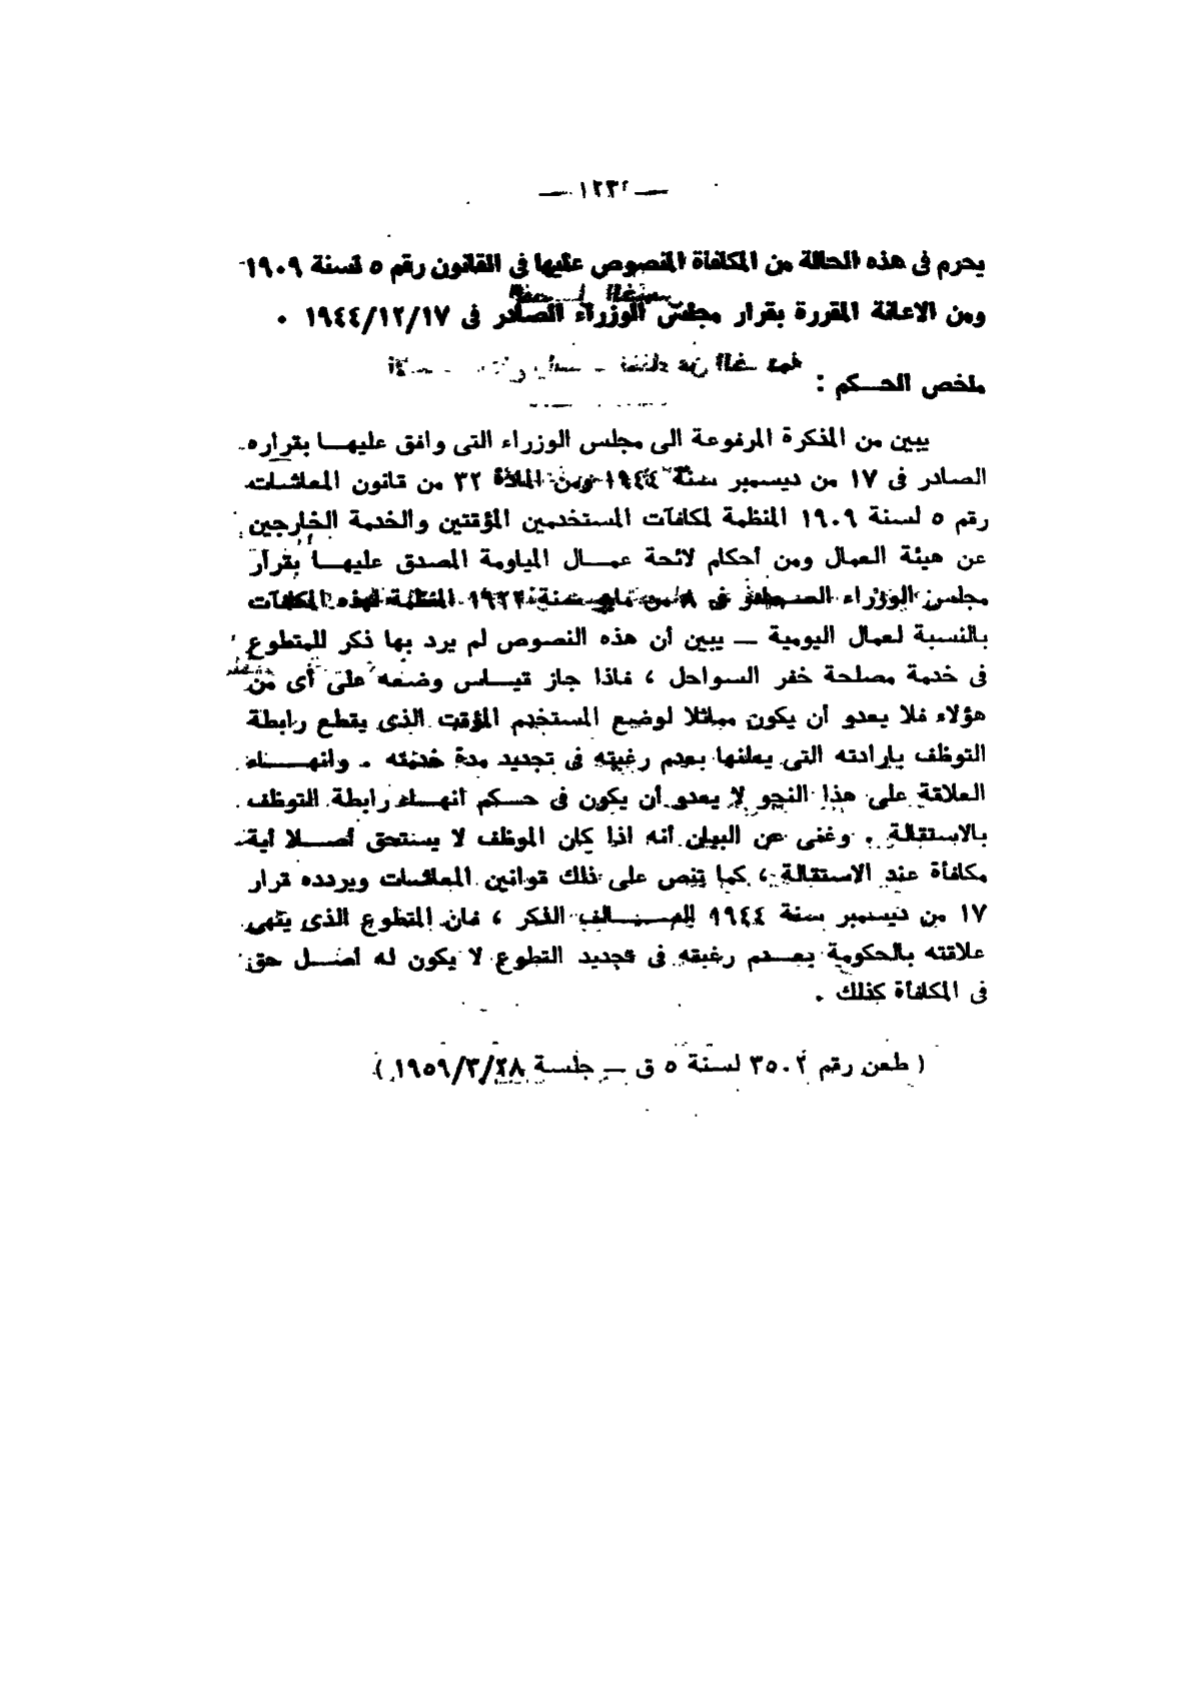 — ١٢٣٢ —
يحرم فى هذه الحالة من المكافأة المنصوص عليها فى القانون رقم ٥ لسنة ١٩٠٩
ومن الاعانة المقررة بقرار مجلس الوزراء الصادر فى ١٩٤٤/١٢/١٧ .
ملخص الحـــكم :
يبين من المذكرة المرفوعة الى مجلس الوزراء التى وافق عليهـــا بقراره
الصادر فى ١٧ من ديسمبر سنة ١٩٤٤ ومن المادة ٣٢ من قانون المعاشات
رقم ٥ لسنة ١٩٠٩ المنظمة لمكافآت المستخدمين المؤقتين والخدمة الخارجين
عن هيئة العمال ومن أحكام لائحة عمـــال المياومة المصدق عليهـــا بقرار
مجلس الوزراء الصـــادر فى ٨ من مايو سنة ١٩٢٢ المنظمة لهذه المكافآت
بالنسبة لعمال اليومية — يبين أن هذه النصوص لم يرد بها ذكر للمتطوع
فى خدمة مصلحة خفر السواحل ، فاذا جاز قيـــاس وضعه على أى من
هؤلاء فلا يعدو أن يكون مماثلا لوضع المستخدم المؤقت الذى يقطع رابطة
التوظف بارادته التى يعلنها بعدم رغبته فى تجديد مدة خدمته . وانهـــاء
العلاقة على هذا النحو لا يعدو أن يكون فى حـــكم انهـــاء رابطة التوظف
بالاستقالة . وغنى عن البيان أنه اذا كان الموظف لا يستحق أصـــلا أية
مكافأة عند الاستقالة ، كما تنص على ذلك قوانين المعاشات ويردده قرار
١٧ من ديسمبر سنة ١٩٤٤ الســـالف الذكر ، فان المتطوع الذى ينهى
علاقته بالحكومة بعـــدم رغبته فى تجديد التطوع لا يكون له أصـــل حق
فى المكافأة كذلك .
( طعن رقم ٣٥٠٢ لسنة ٥ ق — جلسة ١٩٥٩/٣/٢٨ )